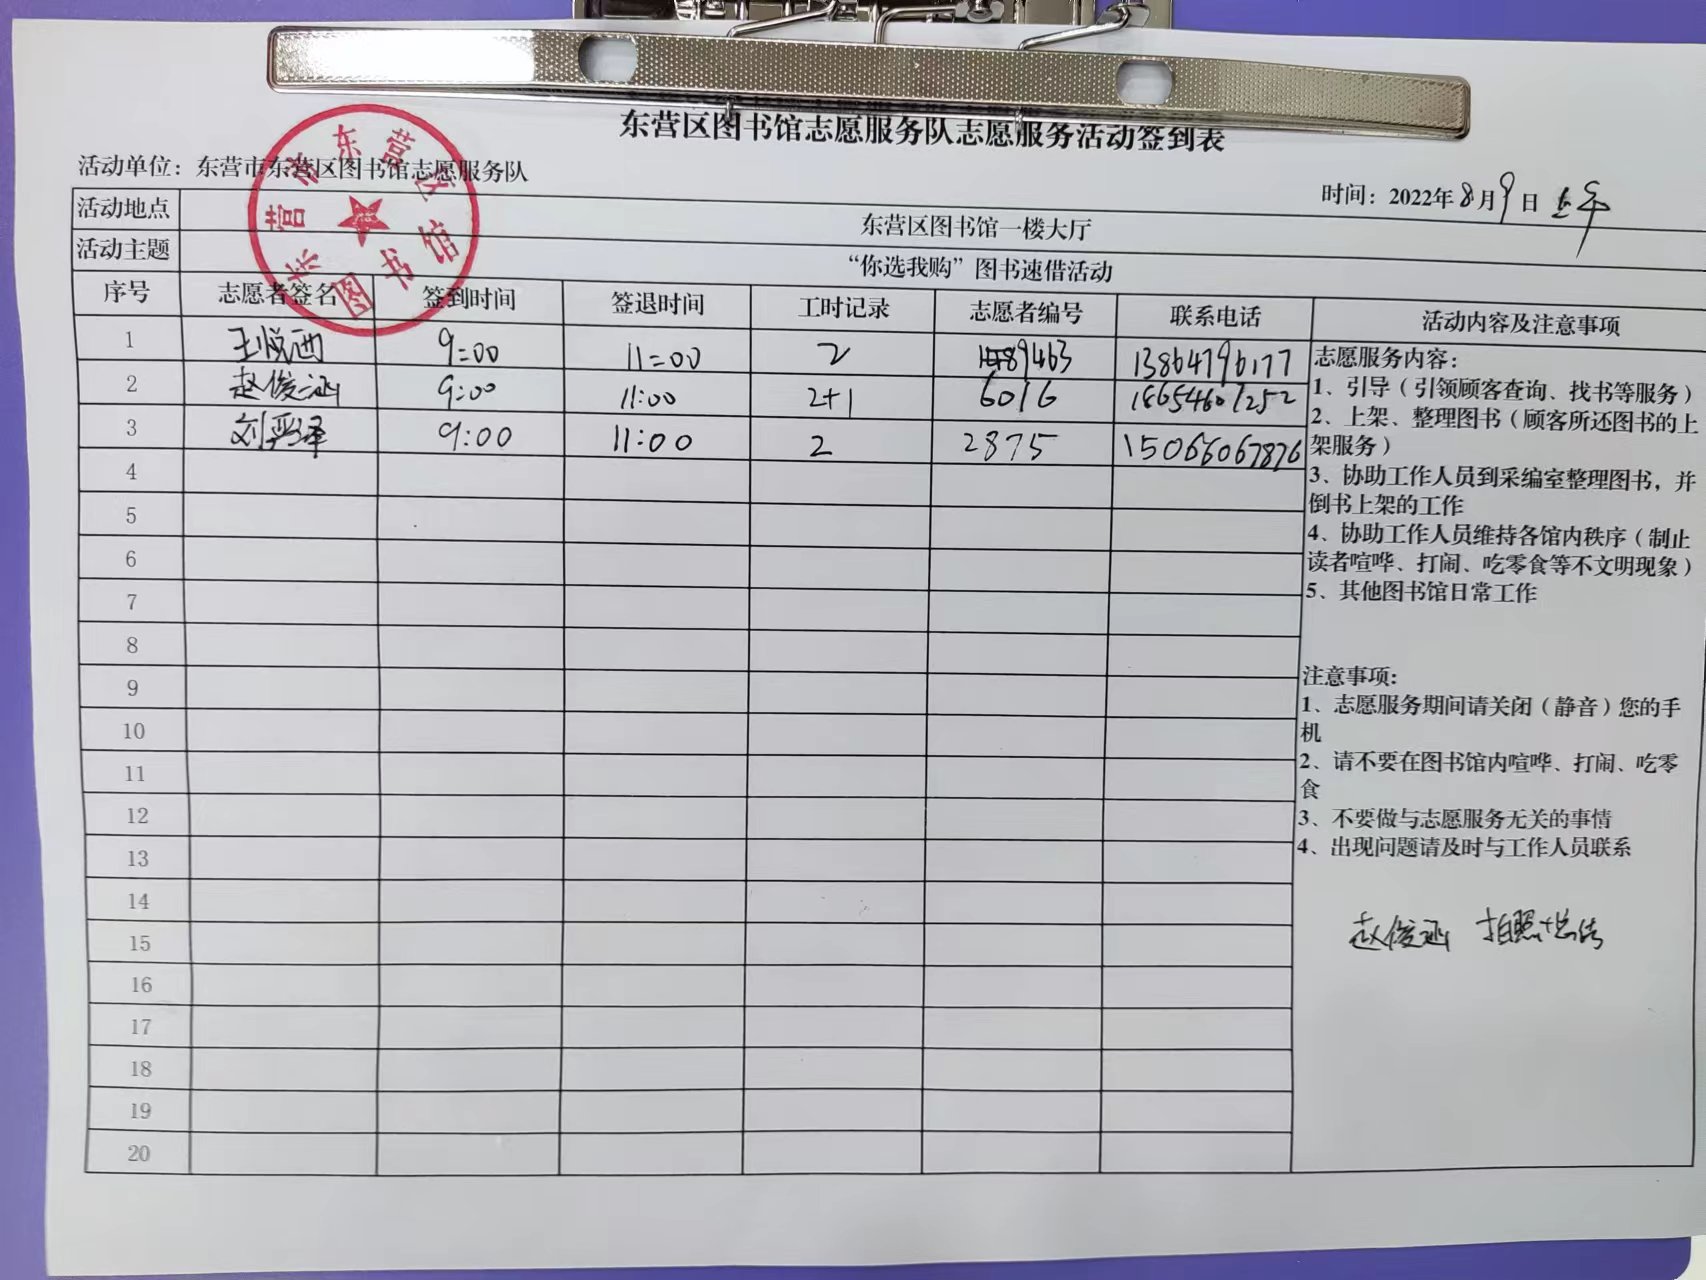 东营区图书馆志愿服务队志愿服务活动签到表
活动单位：东营市东营区图书馆志愿服务队
时间：2022年8月9日 上午
东营市东营区图书馆
活动地点 东营区图书馆一楼大厅
活动主题 “你选我购”图书速借活动
序号 志愿者签名 签到时间 签退时间 工时记录 志愿者编号 联系电话 活动内容及注意事项
1 王悦西 9:00 11:00 2 89463 13864796177
2 赵俊涵 9:00 11:00 2+1 6016 18654601252
3 刘晋泽 9:00 11:00 2 2875 15066067876
4
5
6
7
8
9
10
11
12
13
14
15
16
17
18
19
20
志愿服务内容：
1、引导（引领顾客查询、找书等服务）
2、上架、整理图书（顾客所还图书的上
架服务）
3、协助工作人员到采编室整理图书，并
倒书上架的工作
4、协助工作人员维持各馆内秩序（制止
读者喧哗、打闹、吃零食等不文明现象）
5、其他图书馆日常工作
注意事项:
1、志愿服务期间请关闭（静音）您的手
机
2、请不要在图书馆内喧哗、打闹、吃零
食
3、不要做与志愿服务无关的事情
4、出现问题请及时与工作人员联系
赵俊涵 拍照+总结